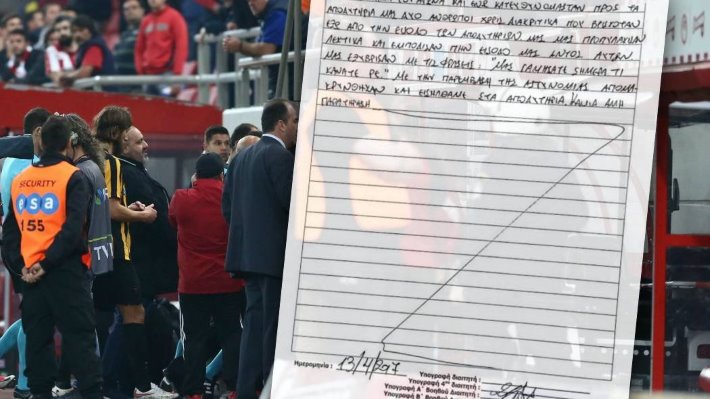 ΚΑΙ ΕΝΩ ΚΑΤΕΥΘΥΝΟΜΑΣΤΑΝ ΠΡΟΣ ΤΑ
ΑΠΟΔΥΤΗΡΙΑ ΜΑΣ ΔΥΟ ΑΝΘΡΩΠΟΙ ΧΩΡΙΣ ΔΙΑΚΡΙΤΙΚΑ ΠΟΥ ΒΡΙΣΚΟΤΑΝ
ΕΞΩ ΑΠΟ ΤΗΝ ΕΙΣΟΔΟ ΤΩΝ ΑΠΟΔΥΤΗΡΙΩΝ ΜΑΣ ΜΑΣ
ΛΕΚΤΙΚΑ ΚΑΙ ΕΜΠΟΔΙΣΑΝ ΤΗΝ ΕΙΣΟΔΟ ΜΑΣ ΕΝΤΟΣ ΑΥΤΩΝ
ΜΑΣ ΕΞΥΒΡΙΣΑΝ ΜΕ ΤΙΣ ΦΡΑΣΕΙΣ: "ΜΑΣ ΓΑΜΗΣΑΤΕ ΣΗΜΕΡΑ ΤΙ
ΚΑΝΑΤΕ ΡΕ." ΜΕ ΤΗΝ ΠΑΡΕΜΒΑΣΗ ΤΗΣ ΑΣΤΥΝΟΜΙΑΣ ΑΠΟΜΑ
ΚΡΥΝΘΗΚΑΝ ΚΑΙ ΕΙΣΗΛΘΑΜΕ ΣΤΑ ΑΠΟΔΥΤΗΡΙΑ. ΚΑΜΙΑ ΑΛΛΗ
ΠΑΡΑΤΗΡΗΣΗ
Ημερομηνία: 13/4/
Υπογραφή διαιτητή:
Υπογραφή 4ου διαιτητή:
Υπογραφή Α' Βοηθού Διαιτητή
Υπογραφή Β' Βοηθού
SECURITY
esa
155
TV